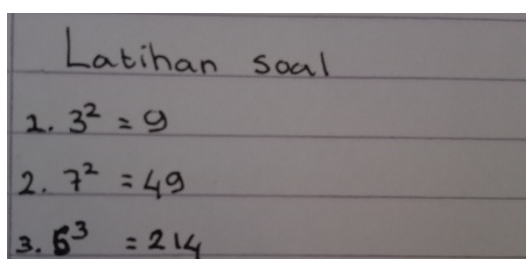 Latihan soal
1. 3² = 9
2. 7² = 49
3. 6³ = 214